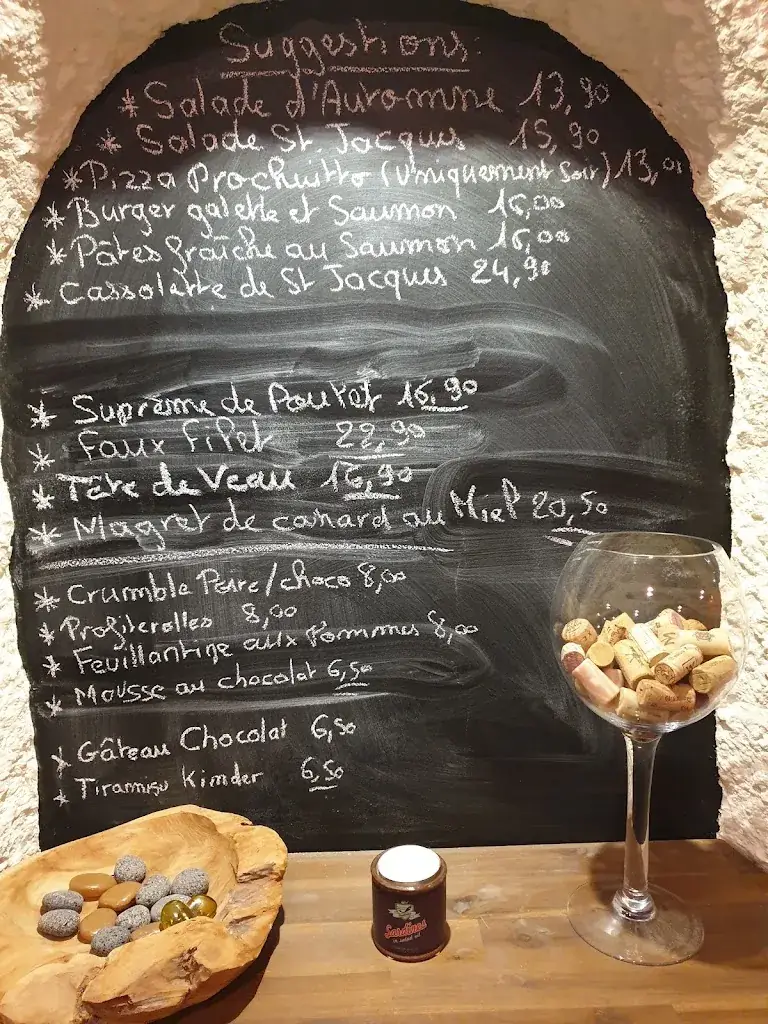 Suggestions:
* Salade d'Automne 13,90
* Salade St. Jacques 15,90
* Pizza Prochuitto (Uniquement Soir) 13,01
* Burger galette et Saumon 16,00
* Pâtes fraîche au Saumon 16,00
* Cassolette de St Jacques 24,90
* Suprême de Poulet 16,90
* Faux Filet 22,90
* Tête de Veau 16,90
* Magret de canard au Miel 20,50
* Crumble Poire/choco 8,00
* Profiterolles 8,00
* Feuillantine aux Pommes 8,00
* Mousse au chocolat 6,50
* Gâteau Chocolat 6,50
* Tiramisu Kinder 6,50
Sardines